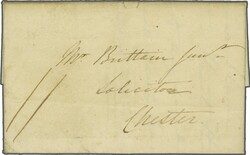 Mr Brittain Junr
Solicitor
Chester
11